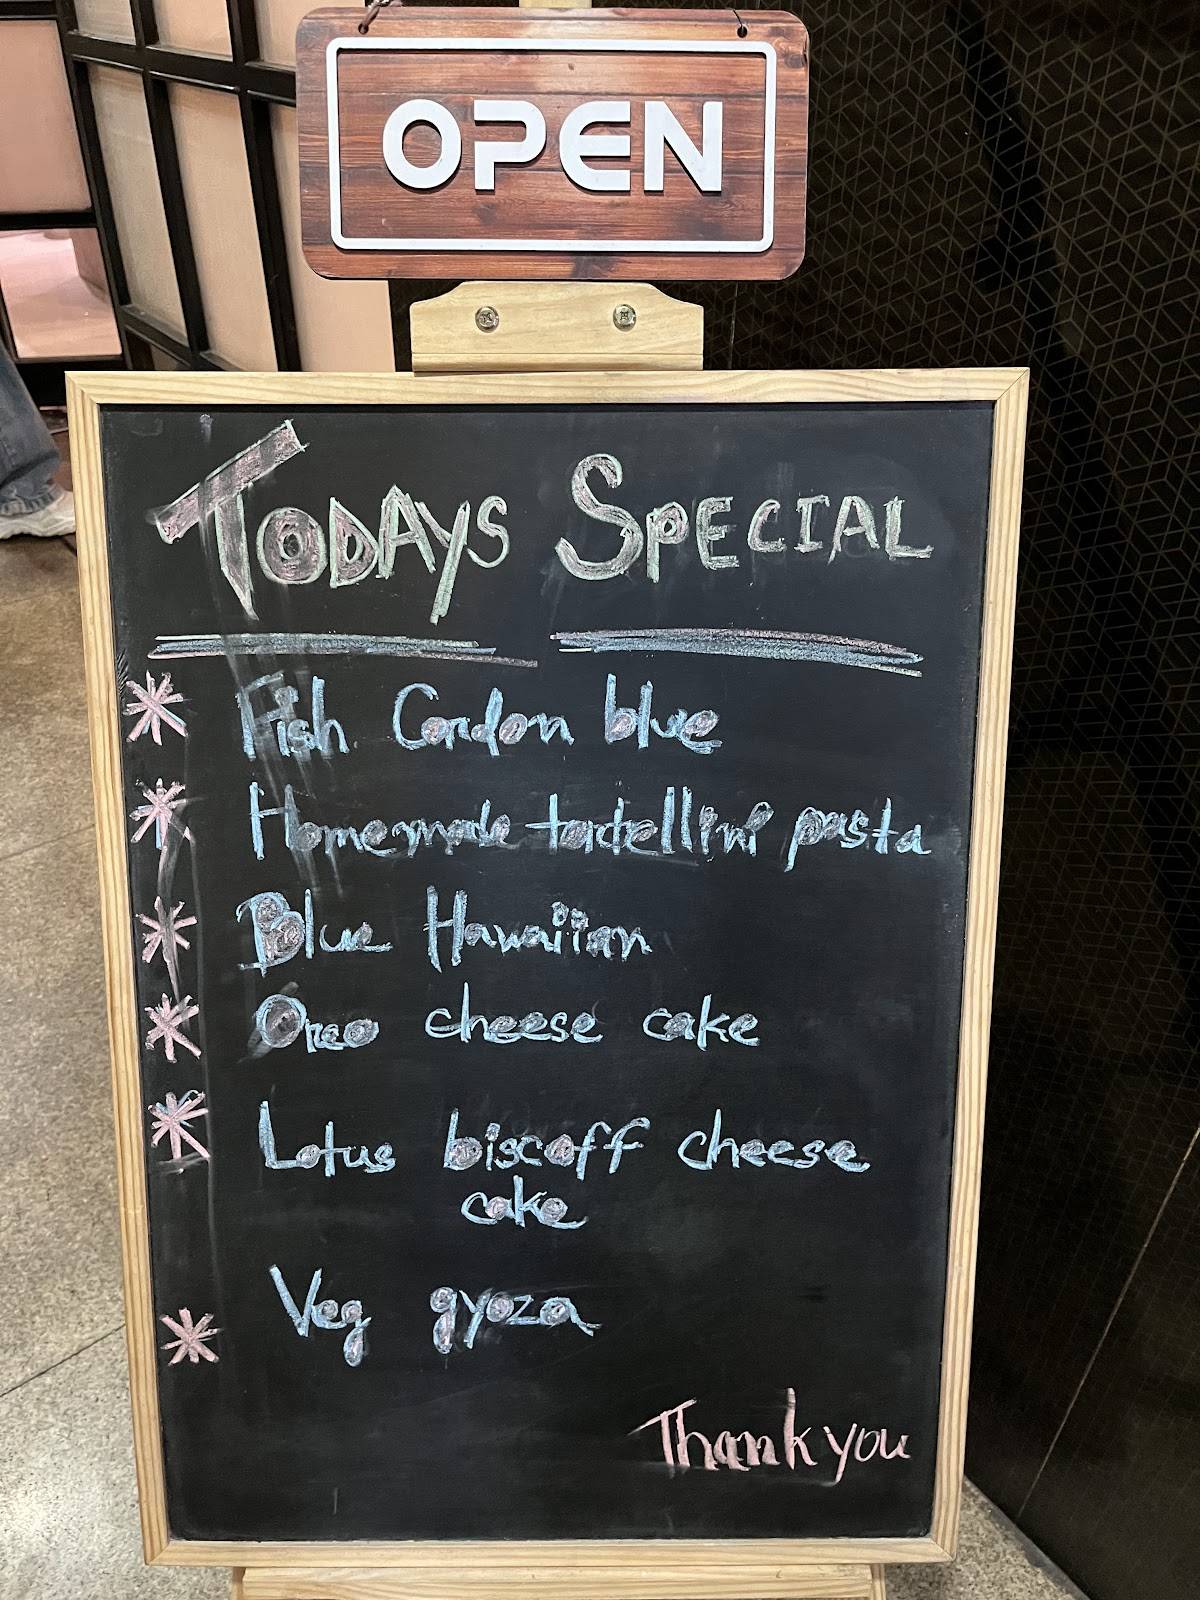 OPEN
TODAYS SPECIAL
Fish Cordon blue
Homemade tortellini pasta
Blue Hawaiian
Oreo cheese cake
Lotus biscoff cheese
cake
Veg gyoza
Thank you